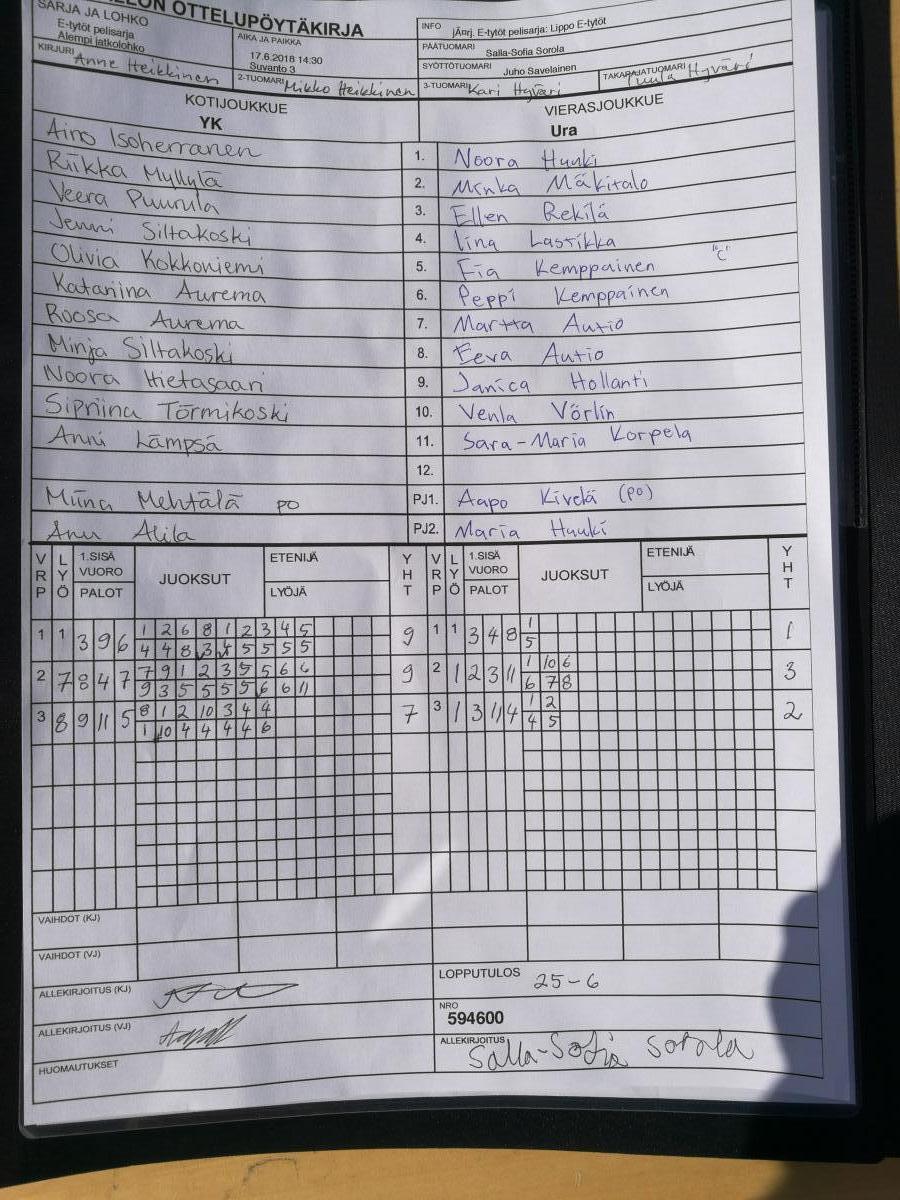 OTTELUPÖYTÄKIRJA
SARJA JA LOHKO
E-tytöt pelisarja
Alempi jatkolohko
AIKA JA PAIKKA
17.6.2018 14:30
Suvanto 3
INFO
jÄnrj. E-tytöt pelisarja: Lippo E-tytöt
PÄÄTUOMARI Salla-Sofia Sorola
SYÖTTÖTUOMARI Juho Savelainen
KIRJURI Anne Heikkinen
2-TUOMARI Mikko Heikkinen
3-TUOMARI Kari Hyväri
TAKARAJATUOMARI Tuula Hyväri
KOTIJOUKKUE
YK
VIERASJOUKKUE
Ura
Aino Isoherranen 1. Noora Huuki
Riikka Myllylä 2. Minka Mäkitalo
Veera Puurula 3. Ellen Rekilä
Jenni Siltakoski 4. Iina Lastikka
Olivia Kokkoniemi 5. Fia Kemppainen "C"
Katariina Aurema 6. Peppi Kemppainen
Roosa Aurema 7. Martta Autio
Minja Siltakoski 8. Eeva Autio
Noora Hietasaari 9. Janica Hollanti
Sipriina Törmikoski 10. Venla Vörlin
Anni Lämpsä 11. Sara-Maria Korpela
12.
Miina Mehtälä po PJ1. Aapo Kivelä (po)
Anu Alila PJ2. Maria Huuki
VRP LYÖ 1.SISÄ VUORO PALOT JUOKSUT ETENIJÄ LYÖJÄ YHT VRP LYÖ 1.SISÄ VUORO PALOT JUOKSUT ETENIJÄ LYÖJÄ YHT
1 1 3 9 6 1 2 6 8 1 2 3 4 5 9 1 1 3 4 8 1 1
4 4 8 3 5 5 5 5 5
2 7 8 4 7 7 9 1 2 3 5 5 6 6 9 2 1 2 3 11 1 10 6 3
9 3 5 5 5 5 6 6 11 6 7 8
3 8 9 11 5 8 1 2 10 3 4 4 7 3 1 3 11 4 1 2 2
1 10 4 4 4 4 6 4 5
VAIHDOT (KJ)
VAIHDOT (VJ)
ALLEKIRJOITUS (KJ)
LOPPUTULOS 25-6
ALLEKIRJOITUS (VJ)
NRO
594600
HUOMAUTUKSET
ALLEKIRJOITUS Salla-Sofia Sorola